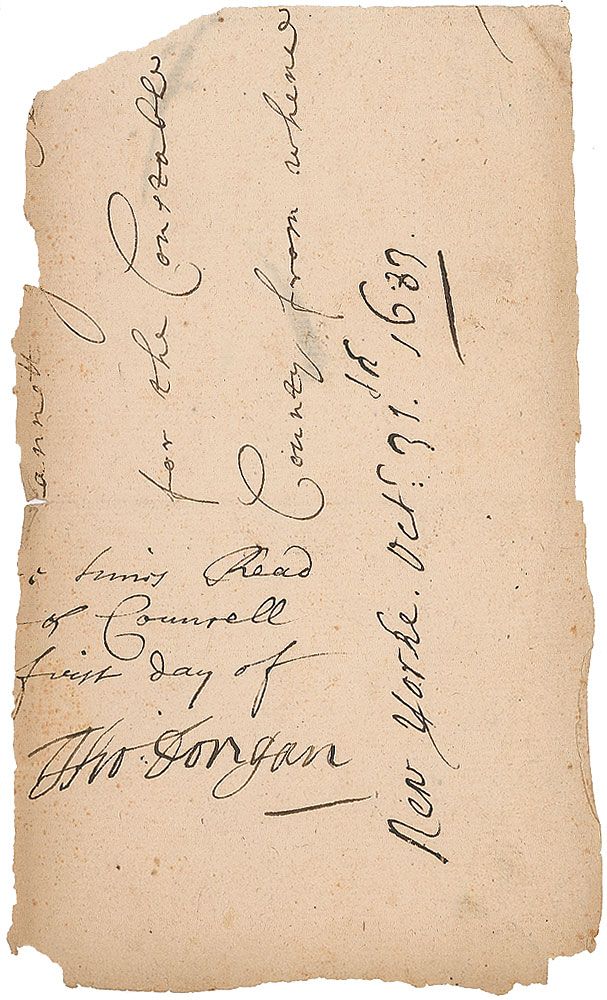 times Read
of Counsell
first day of
Tho: Dongan
annott
for the Constable
County from whence
New Yorke. Octr: 31th. 1687.